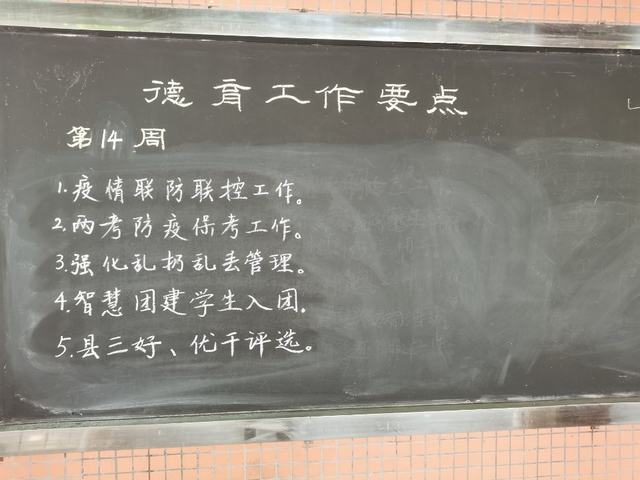 德育工作要点
第14周
1.疫情联防联控工作。
2.两考防疫保考工作。
3.强化乱扔乱丢管理。
4.智慧团建学生入团.
5.县三好、优干评选。